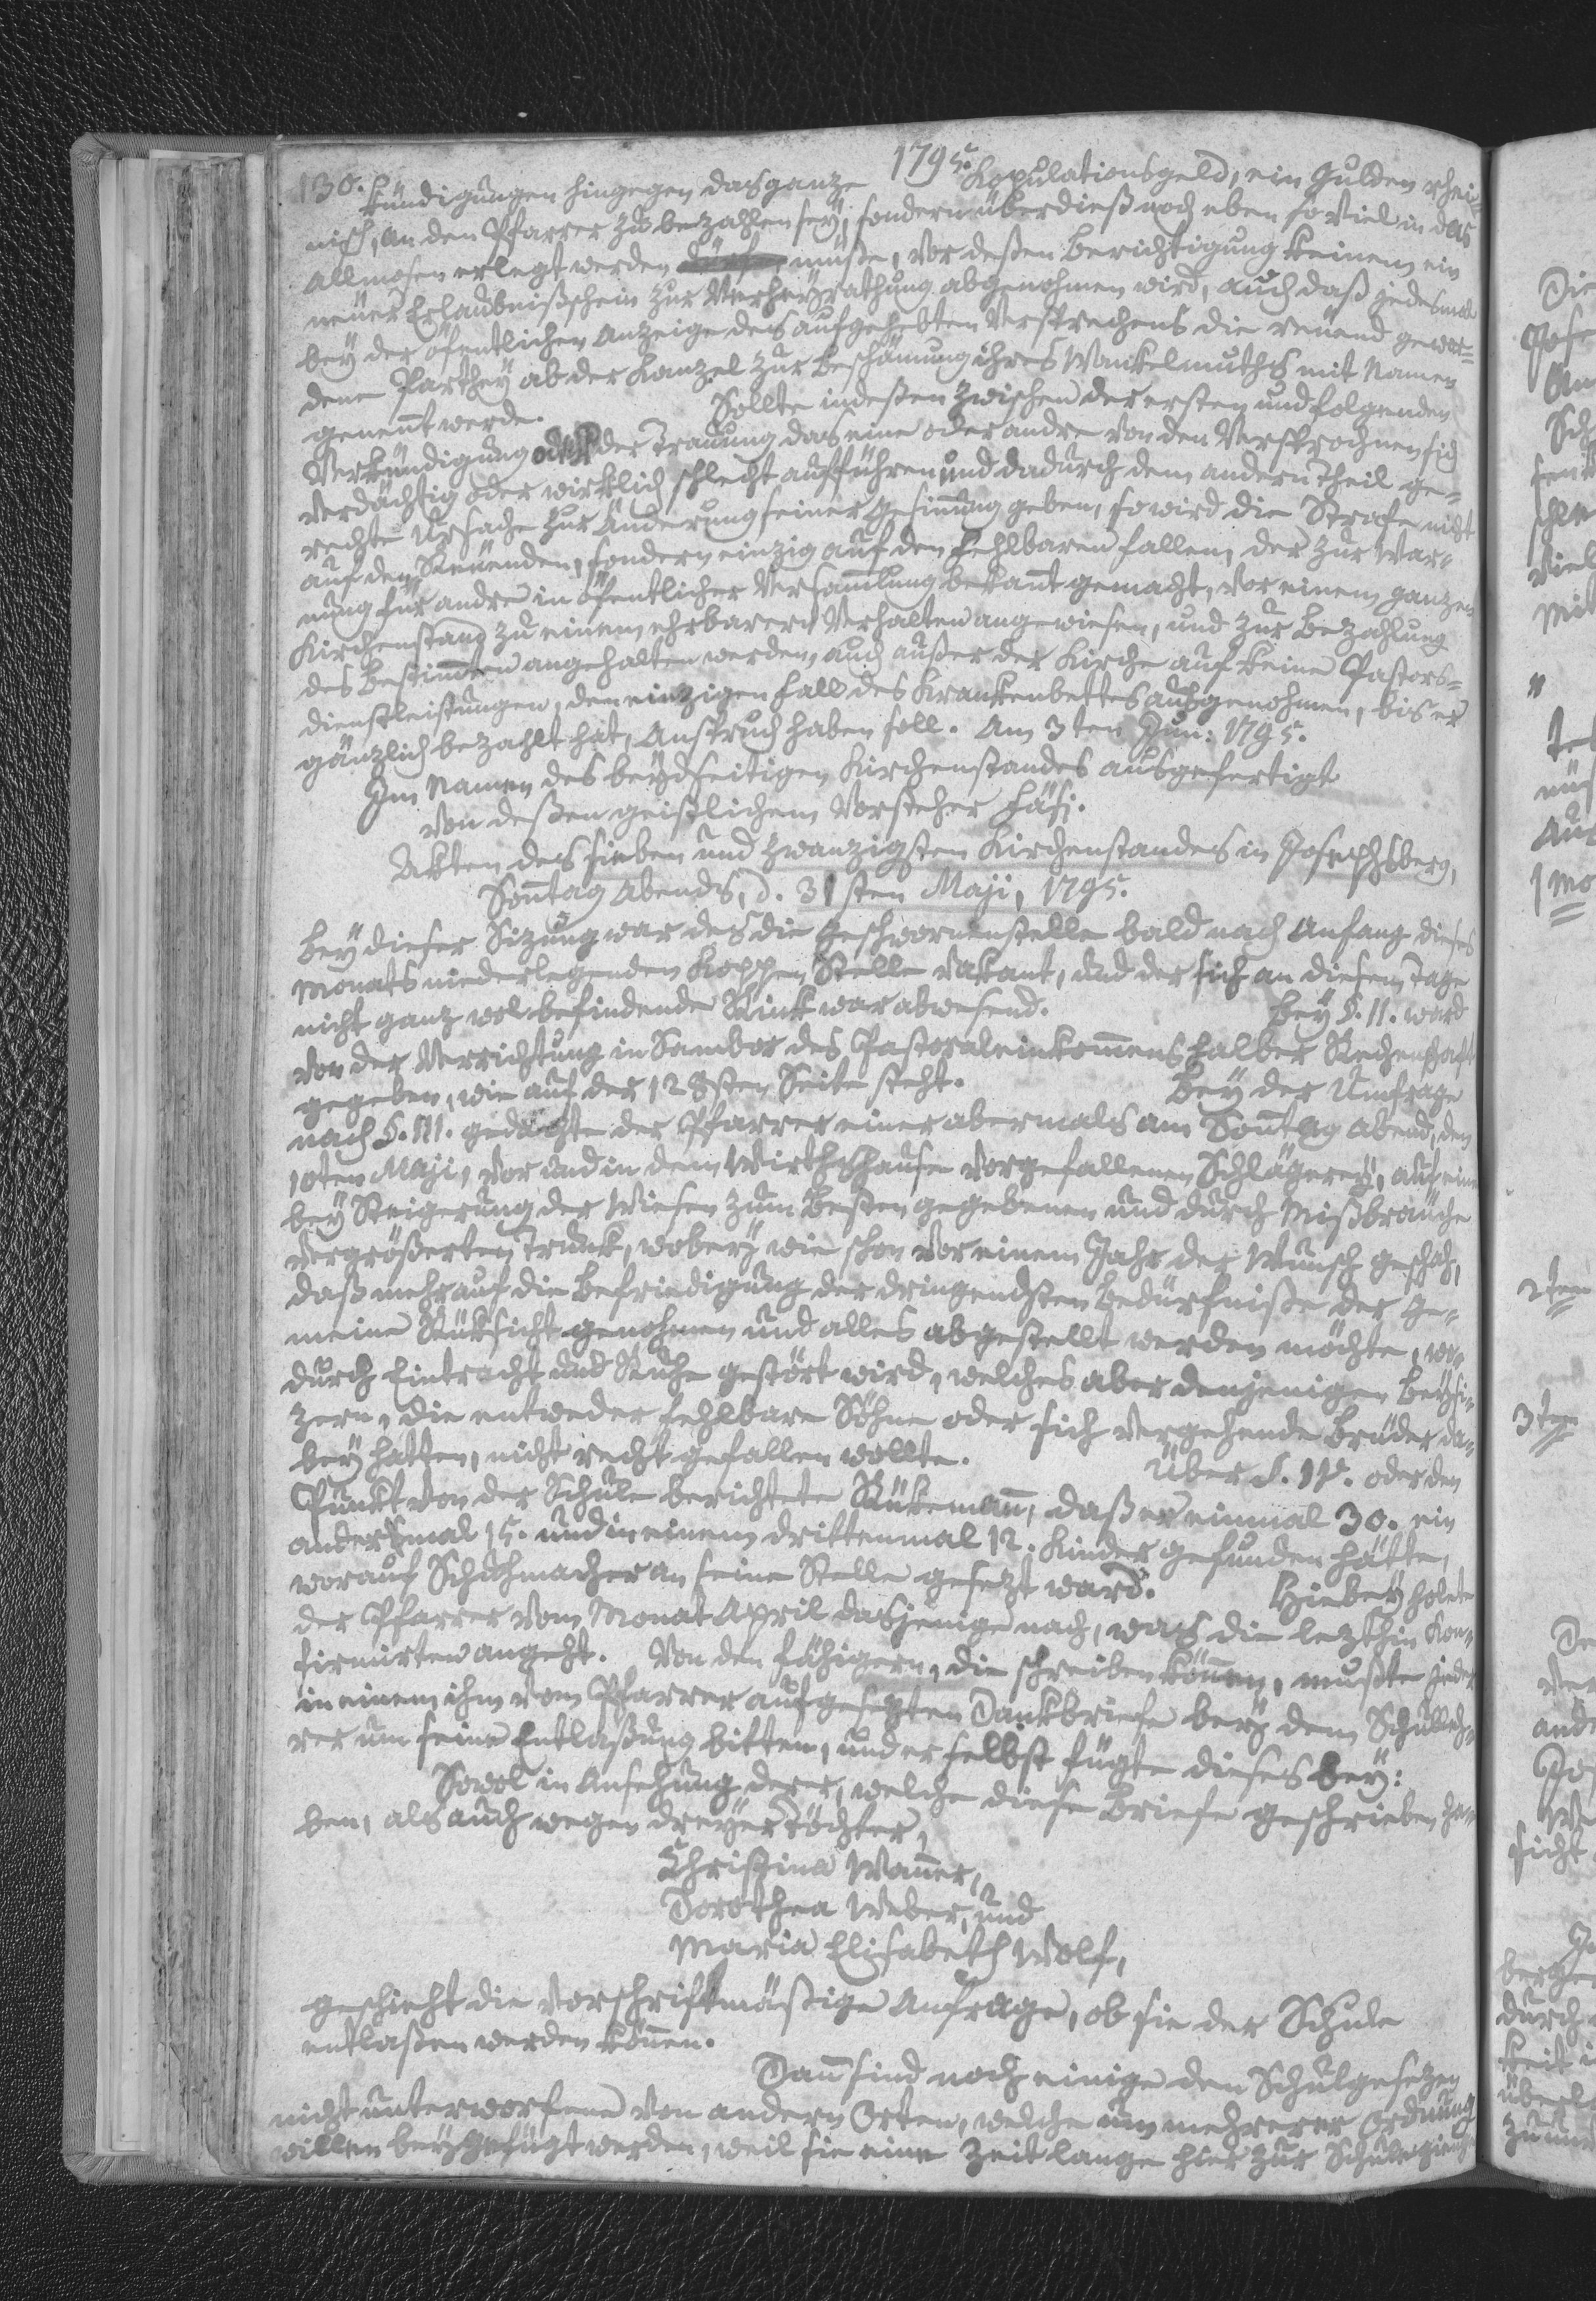 1795.
130. kündigungen hingegen das ganze Kopulationsgeld, ein Gulden rhei-
nisch, an den Pfarrer zu bezahlen sey, sondern überdieß noch eben so viel in das
Allmosen erlegt werden müße, vor deßen Berichtigung keinem ein
neuer Erlaubnißschein zur Verheyrathung abgenohmen wird, auch daß jedesmal
bey der öfentlichen Anzeige des aufgehebten Versprechens die reuend gewor-
dene Parthey ab der Kanzel zur Beschämung ihres Wankelmuths mit Namen
genennt werde. Sollte indeßen zwischen der ersten und folgenden
Verkündigung oder der Trauung das eine oder andre von den Versprochnen sich
verdächtig oder wirklich schlecht aufführen und dadurch dem andern Theil ge-
rechte Ursache zur Änderung seiner Gesinnung geben, so wird die Strafe nicht
auf den Reuenden, sondern einzig auf den Fehlbaren fallen, der zur War-
nung für andre in öfentlicher Versammlung bekannt gemacht, vor einem ganzen
Kirchenstand zu einem ehrbarern Verhalten angewiesen, und zur Bezahlung
des Bestimmten angehalten werden, auch außer der Kirche auf keine Pastors-
dienstleistungen, den einzigen Fall des Krankenbettes ausgenohmen, bis er
gänzlich bezahlt hat, Anspruch haben soll. Am 3ten Jun: 1795.
Im Namen des beydseitigen Kirchenstandes ausgefertigt
von deßen geistlichem Vorsteher Fäsi.
Akten des sieben und zwanzigsten Kirchenstandes in Josephsberg,
Sonntag Abends, d. 31sten Maji, 1795.
Bey dieser Sizung war des die Geschwornenstelle bald nach Anfang dieses
Monats niederlegenden Koppen Stelle vakant, und der sich an diesem Tage
nicht ganz wol befindende Rink war abwesend. Bey §. II. ward
von der Verrichtung in Sambor des Pastoraleinkommens halber Rechenschaft
gegeben, wie auf der 128sten Seite steht. Bey der Umfrage
nach §. III. gedachte der Pfarrer einer abermals am Sonntag Abend, den
10ten Maji, vor und in dem Wirthshause vorgefallenen Schlägerey, auf eine
bey Steigerung der Wiesen zum Besten gegebenen und durch Mißbräuche
vergrößerten Trunk, wobey wie schon vor einem Jahr der Wunsch geschah,
daß mehr auf die Befriedigung der dringendsten Bedürfniße der Ge-
meine Rüksicht genohmen und alles abgestellt werden möchte, wo-
durch Eintracht und Ruhe gestört wird, welches aber denjenigen Beysi-
zern, die entweder fehlbare Söhne oder sich vergehende Brüder da-
bey hatten, nicht recht gefallen wollte. Über §. IV. oder den
Punkt von der Schule berichtete Rükemann, daß er einmal 30. ein
andersmal 15. und in einem drittenmal 12. Kinder gefunden hätte,
worauf Schuhmacher an seine Stelle gesezt ward. Hiebey holete
der Pfarrer vom Monat April dasjenige nach, was die lezthin Kon-
firmirten angeht. Von den fähigern, die schreiben können, mußte jeder
in einem ihm vom Pfarrer aufgesezten Dankbriefe bey dem Schulleh-
rer um seine Entlaßung bitten, und er selbst fügte dieses bey:
Sowol in Ansehung derer, welche diese Briefe geschrieben ha-
ben, als auch wegen dreyer Töchter,
Christina Wanner,
Dorothea Weber, und
Maria Elisabeth Wolf,
geschieht die vorschriftmäßige Anfrage, ob sie der Schule
entlaßen werden können.
Dann sind noch einige den Schulgesezen
nicht unterworfene von andern Orten, welche um mehrerer Ordnung
willen beygefügt werden, weil sie eine Zeit lange hier zur Schule giengen